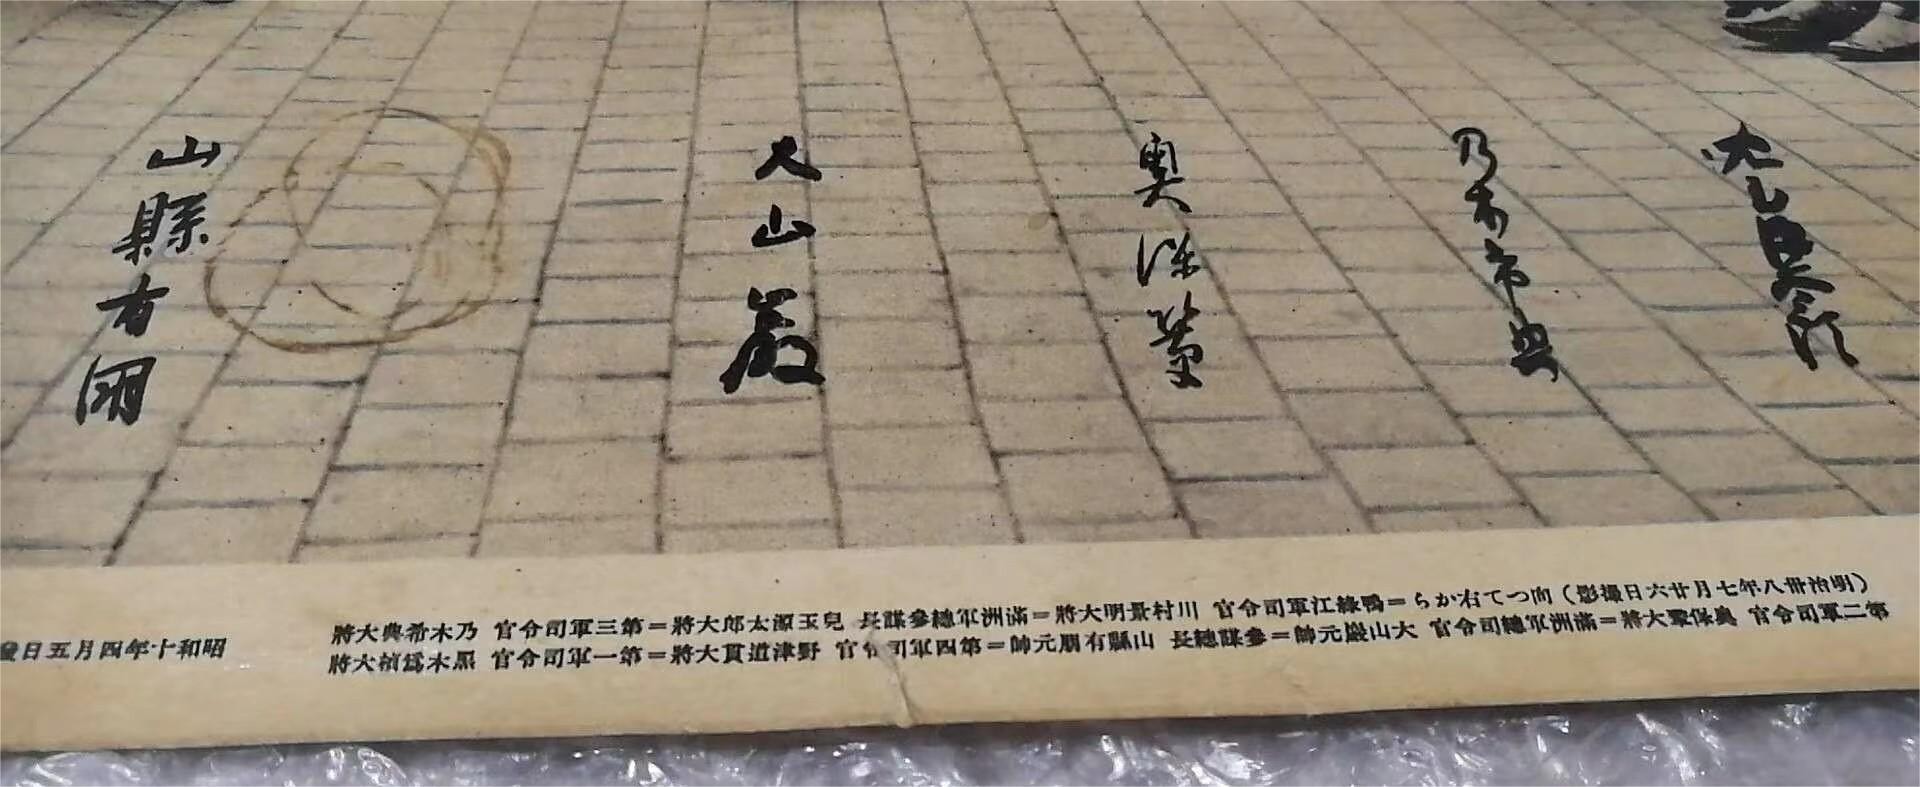 乃木希典
奥保鞏
大山巖
山縣有朋
（明治卅八年七月廿六日撮影）向つて右から＝鴨綠江軍司令官 川村景明大將＝滿洲軍總參謀長 兒玉源太郎大將＝第三軍司令官 乃木希典大將
第二軍司令官 奥保鞏大將＝滿洲軍總司令官 大山巖元帥＝參謀總長 山縣有朋元帥＝第四軍司令官 野津道貫大將＝第一軍司令官 黑木爲楨大將
昭和十年四月五日發